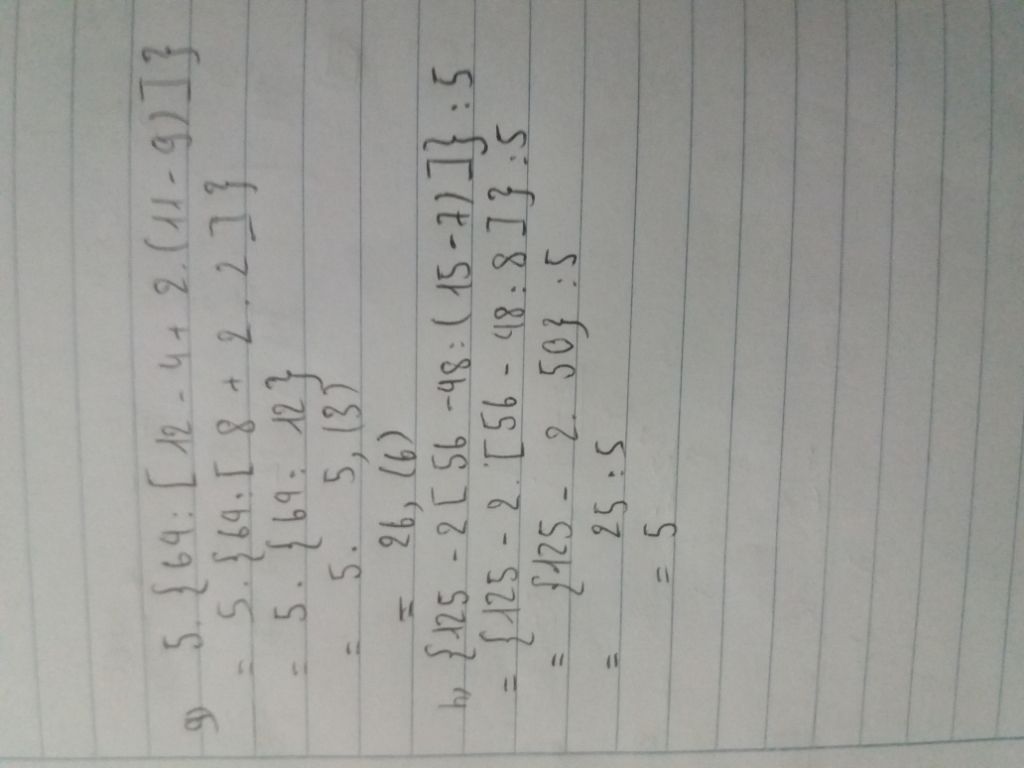 g) 5.{64:[12-4+2.(11-9)]}
= 5.{64:[8+2.2]}
= 5.{64:12}
= 5. 5,(3)
= 26,(6)
h) {125-2[56-48:(15-7)]}:5
= {125-2.[56-48:8]}:5
= {125-2.50}:5
= 25:5
= 5